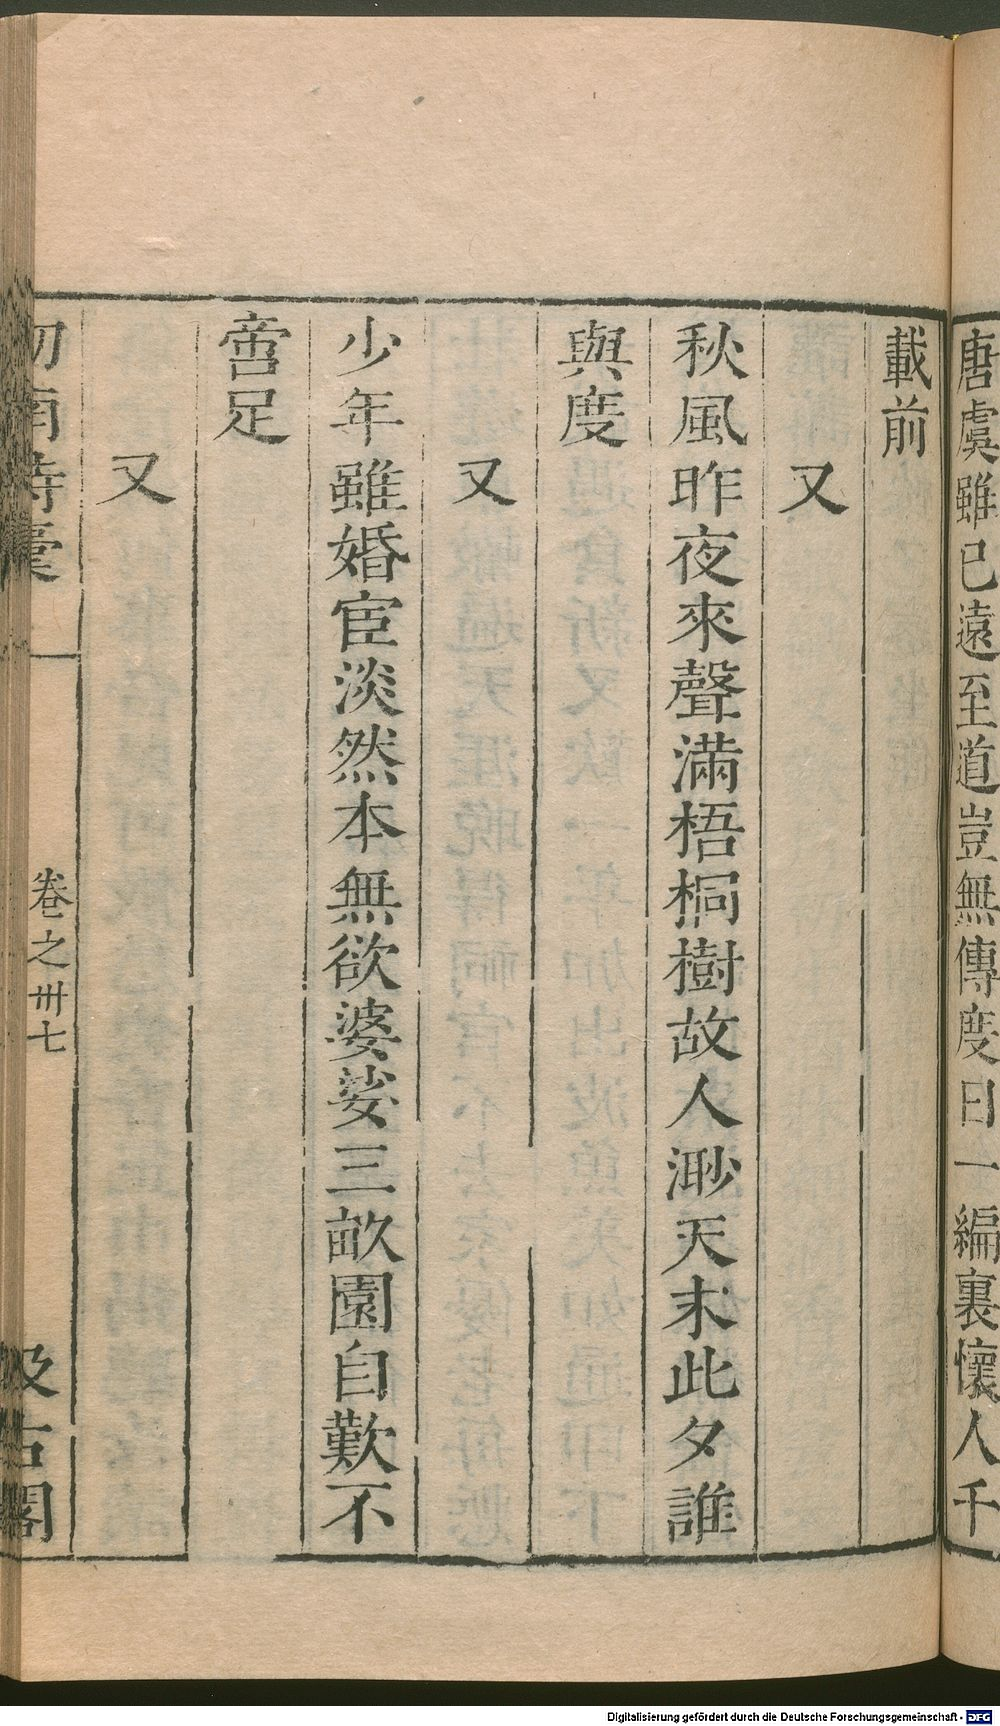 唐虞雖已遠至道豈無傳度日一編裏懷人千
載前
又
秋風昨夜來聲滿梧桐樹故人渺天末此夕誰
與度
又
少年雖婚宦淡然本無欲婆娑三畝園自歎不
啻足
又
劒南詩稾
卷之卅七
汲古閣
Digitalisierung gefördert durch die Deutsche Forschungsgemeinschaft - DFG